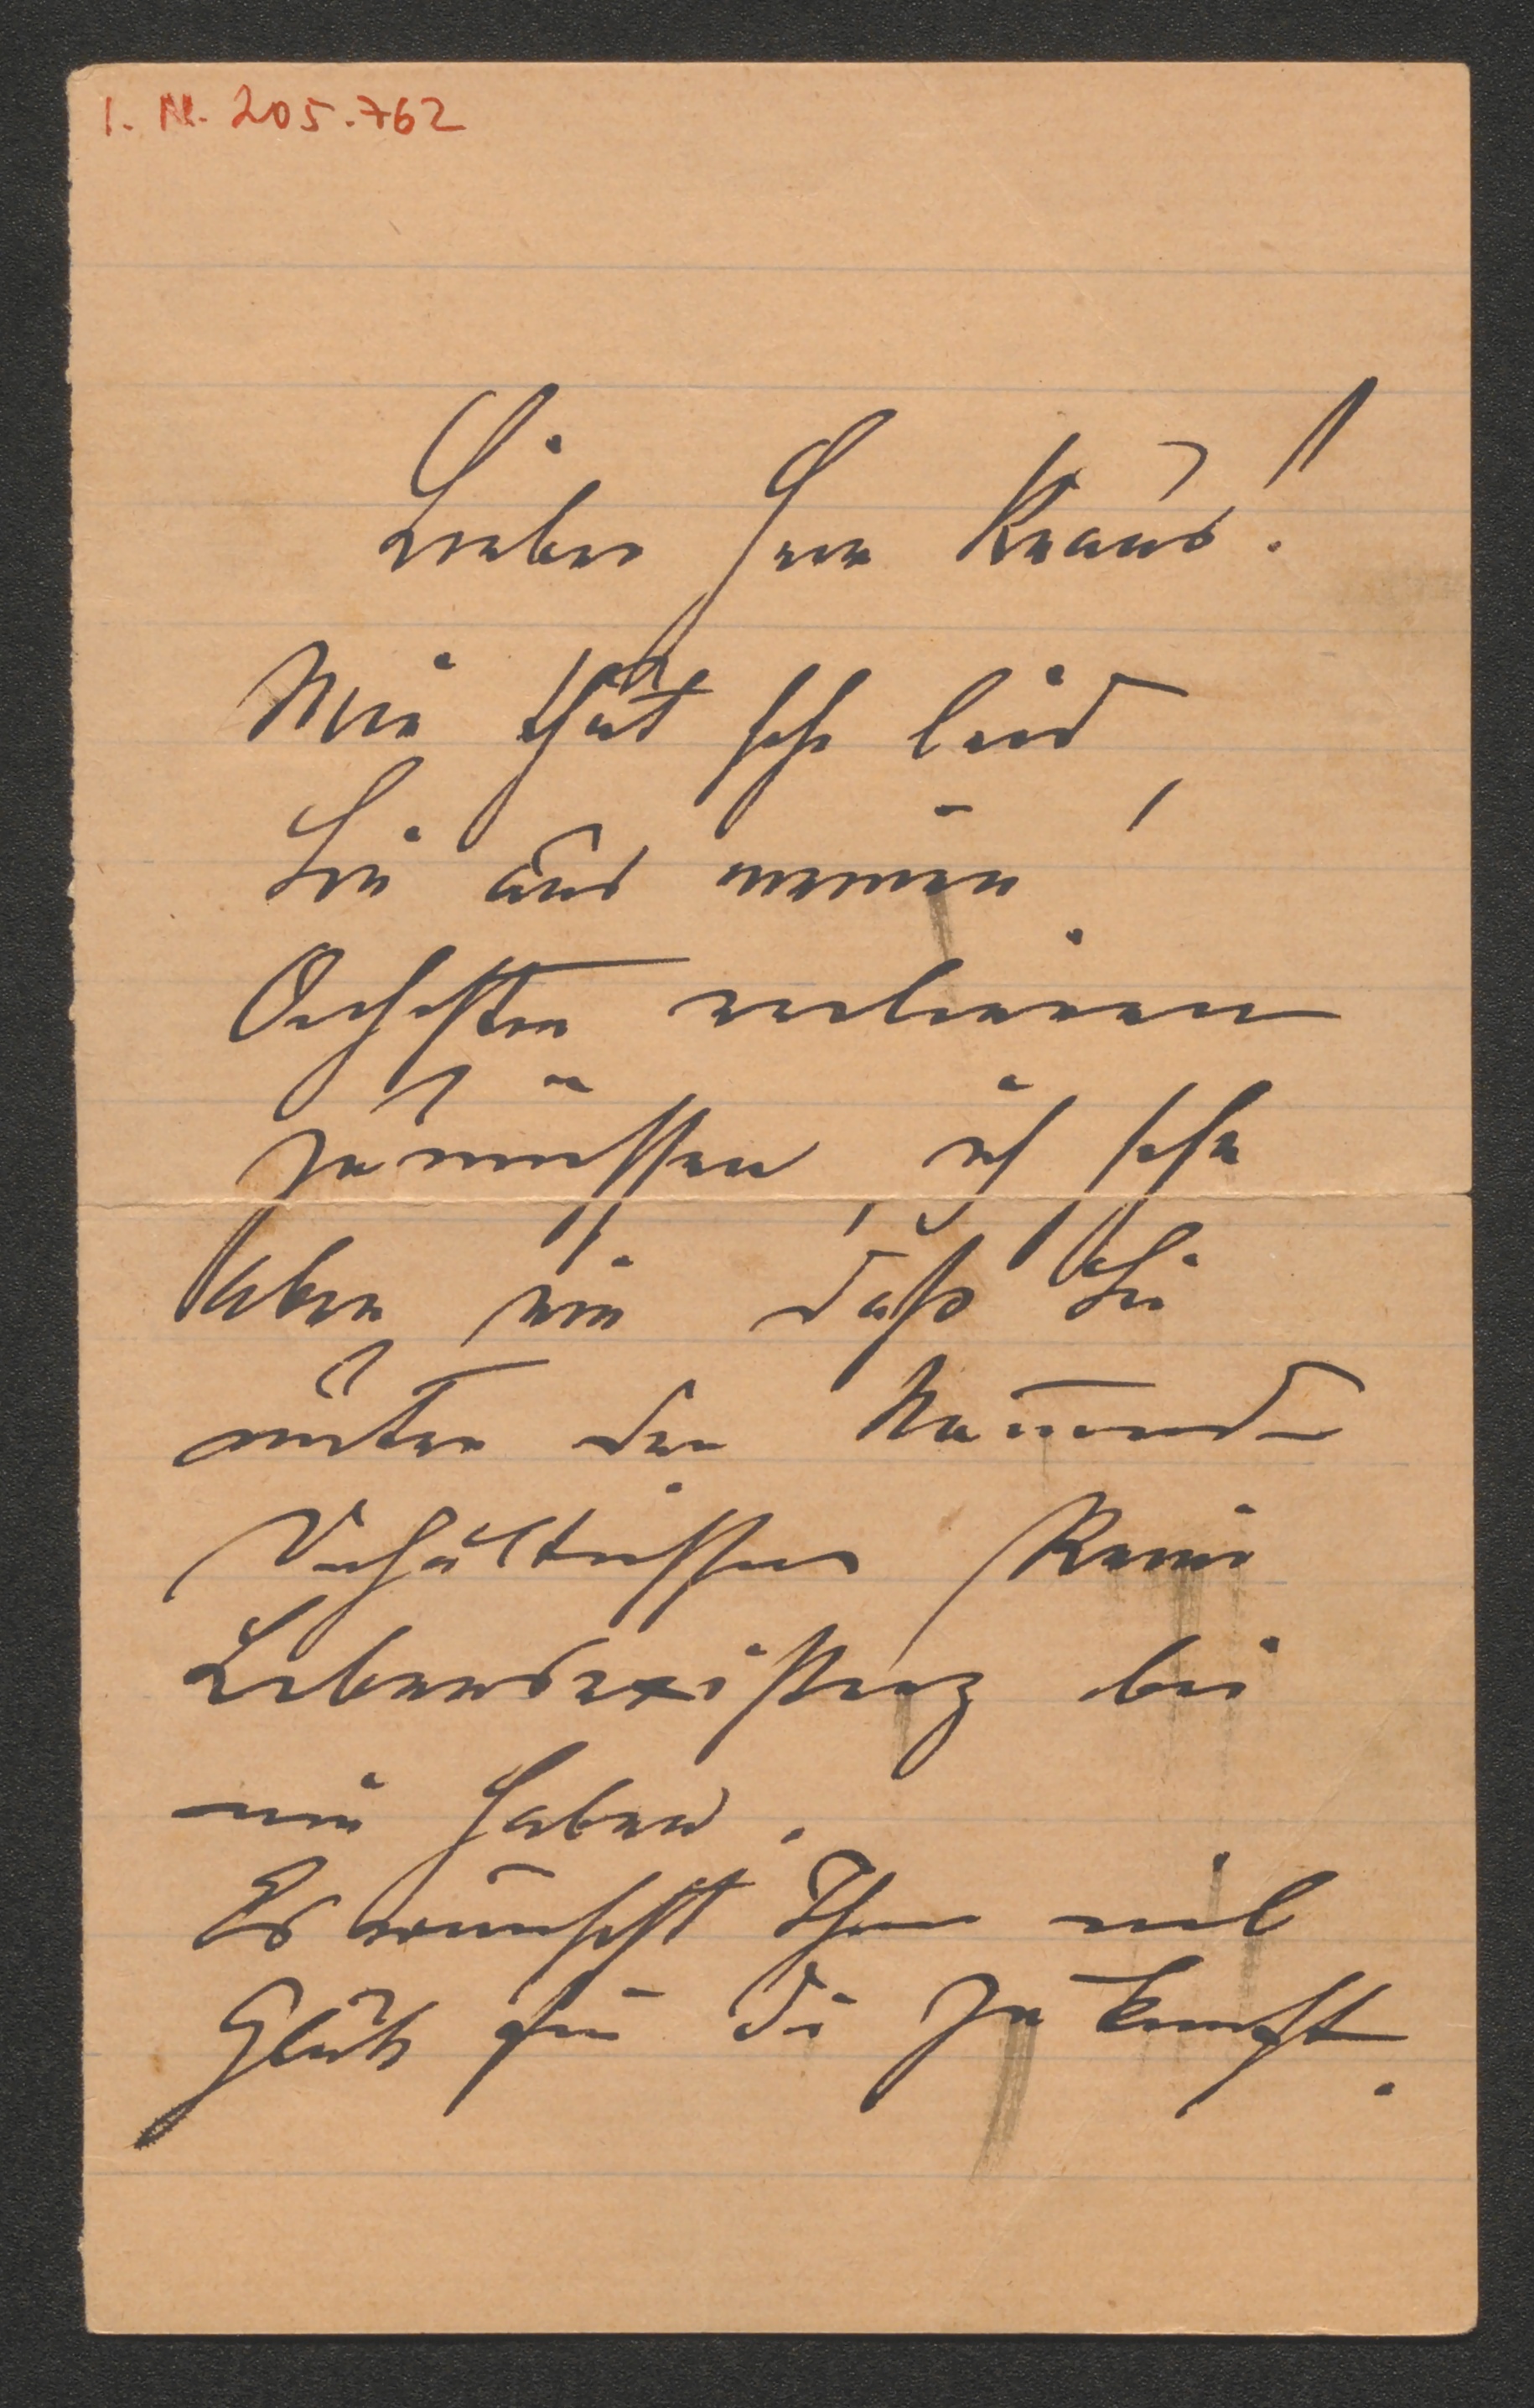 I. N. 205.762
Lieber Herr Kraus!
Mir thut sehr leid,
Sie aus meinen
Orchester verlieren
zu müssen, ich sehe
aber ein daß Sie
unter den
Verhältnissen keine
Lebensexistenz bei
mir haben.
Es wünscht Ihnen viel
Glück für die Zukunft.